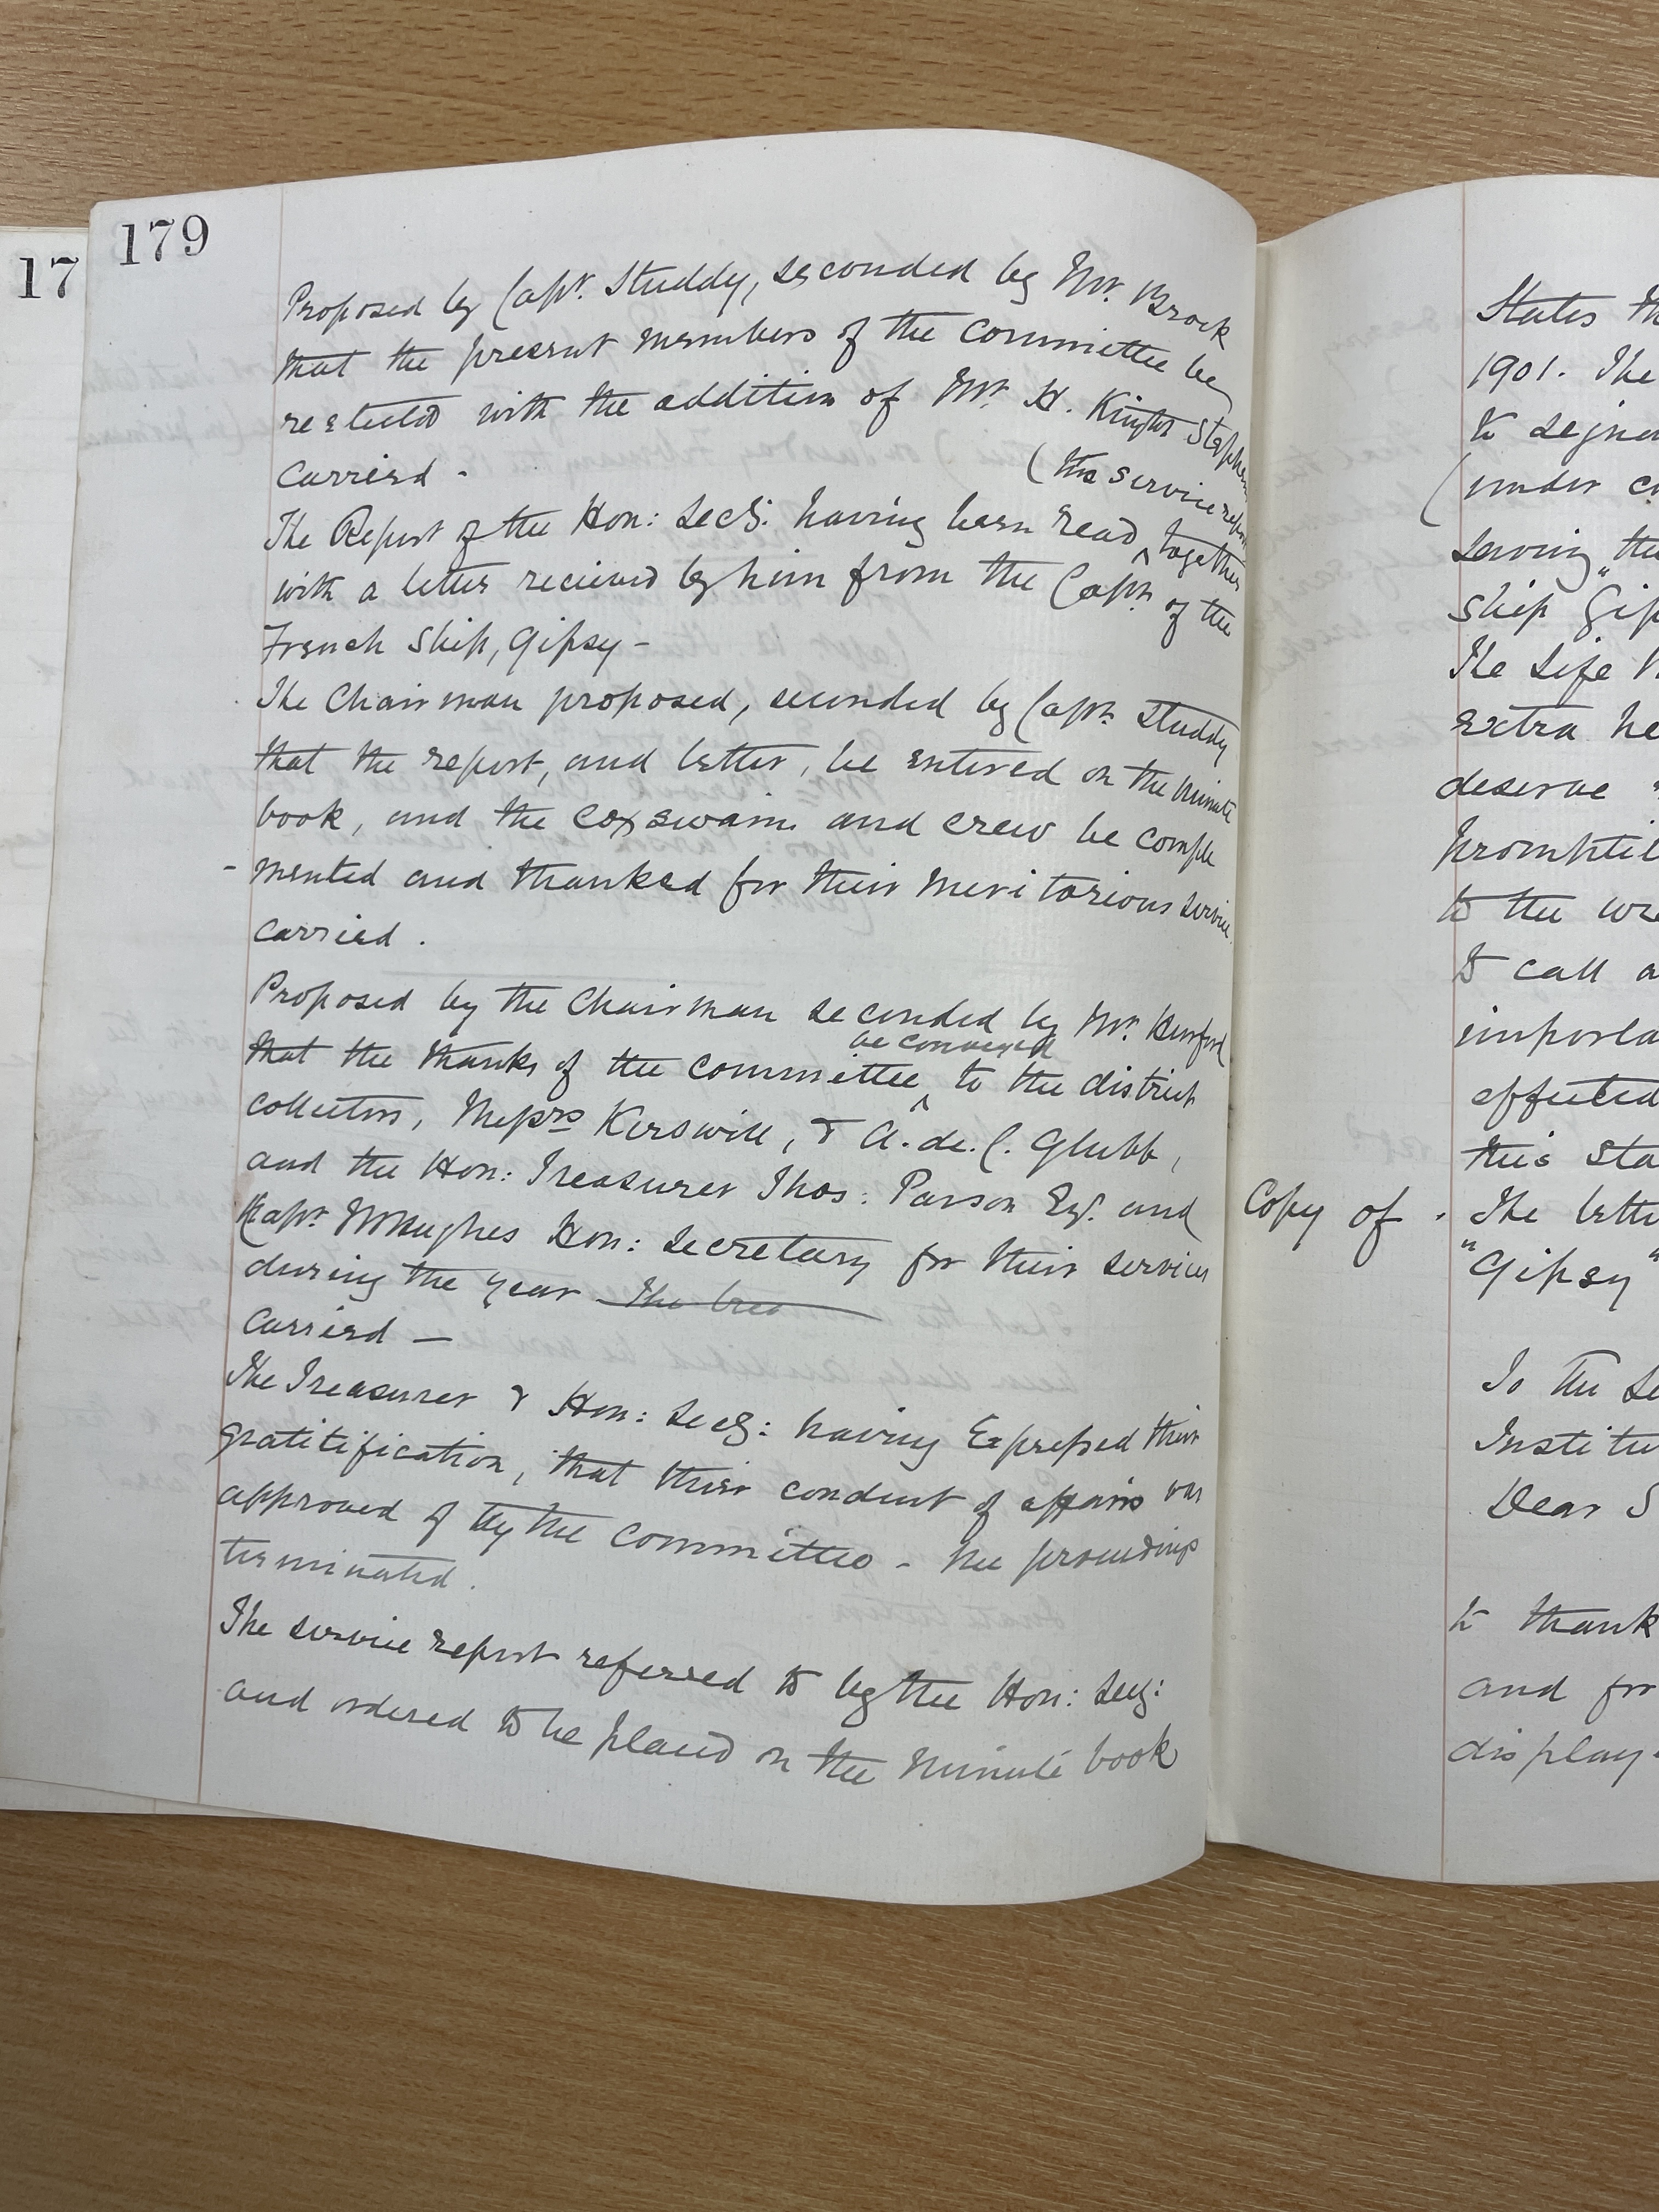 17
179
Proposed by Capt. Studdy, seconded by Mr. Brock
that the present members of the committee be
reelected with the addition of Mr. H. Knight Stephens
carried -
(the service report
The Report of the Hon: Secy. having been read ^ together
with a letter recieved by him from the Captn. of the
French Ship, Gipsy -
The Chairman proposed, seconded by Captn. Studdy
that the report, and letter, be entered on the minute
book, and the coxswain and crew be comple
- mented and thanked for their meritorious service.
carried.
Proposed by the Chairman seconded by Mr.
be conveyed
that the thanks of the committee ^ to the district
collectors, Messrs Kerswill, & A. de. C. Glubb,
and the Hon: Treasurer Thos: Parson Esq. and
Capt. Hughes Hon: Secretary for their services
during the year The
carried —
The Treasurer & Hon: Secy: having Expressed their
gratitification, that their conduct of affairs was
approved of by the committee - the proceedings
terminated.
The service report referred to by the Hon: Secy:
and ordered to be placed on the minute book
States th
1901. The
to
(under co
saving the
ship "Gip
The Life
extra he
deserve
promptit
to the wre
to call a
importa
effected
this Sta
Copy of . The lette
"Gipsy"
To the Se
Institu
Dear S
to thank
and for
display